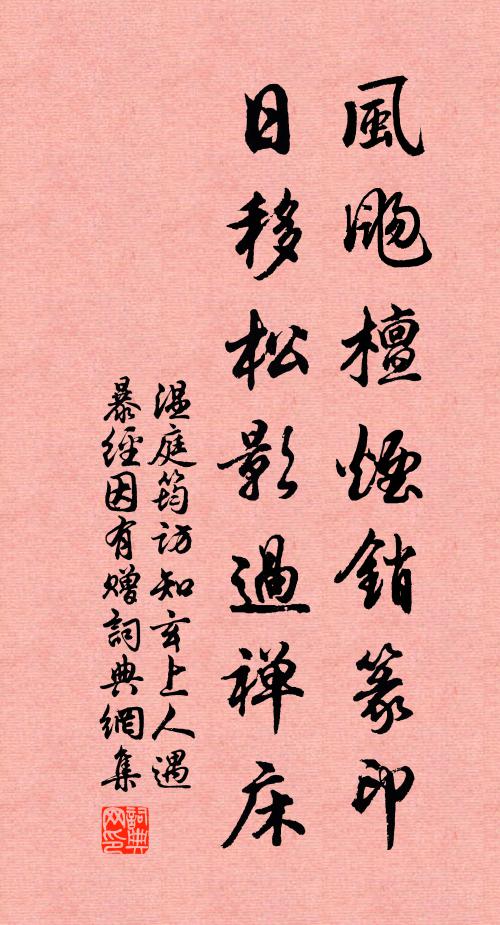 風颺檀煙銷篆印
日移松影過禅床
温庭筠訪知玄上人遇
暴經因有贈詞典網集
詞典
网印